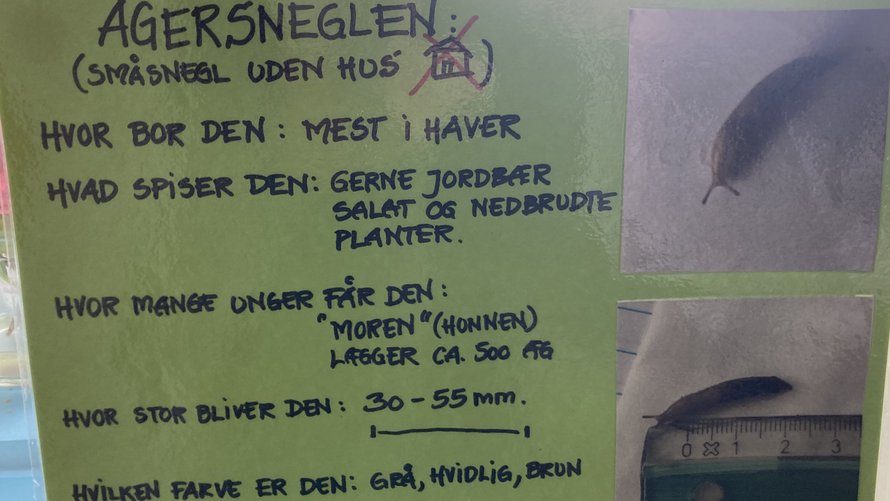 AGERSNEGLEN:
(SMÅSNEGL UDEN HUS )
HVOR BOR DEN: MEST i HAVER
HVAD SPISER DEN: GERNE JORDBÆR
SALAT OG NEDBRUDTE
PLANTER.
HVOR MANGE UNGER FÅR DEN:
"MOREN" (HUNNEN)
LÆGGER CA. 500 ÆG
HVOR STOR BLIVER DEN: 30-55 mm.
HVILKEN FARVE ER DEN: GRÅ, HVIDLIG, BRUN
0 1 2 3